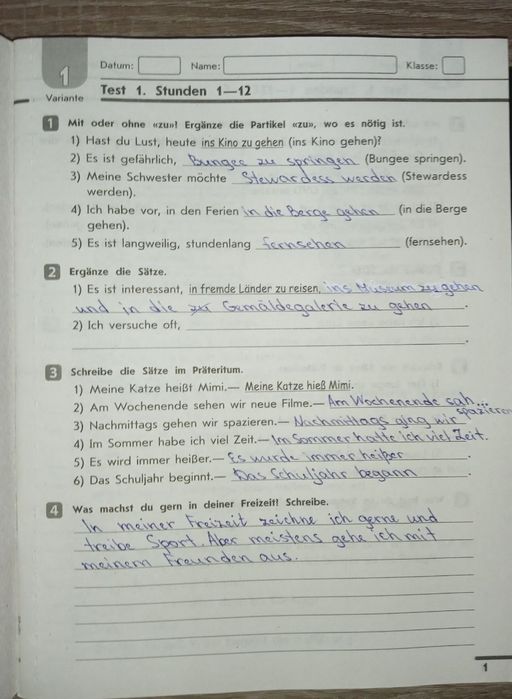 1
Variante
Datum: Name: Klasse:
Test 1. Stunden 1—12
1 Mit oder ohne «zu»? Ergänze die Partikel «zu», wo es nötig ist.
1) Hast du Lust, heute ins Kino zu gehen (ins Kino gehen)?
2) Es ist gefährlich, Bungee zu springen (Bungee springen).
3) Meine Schwester möchte Stewardess werden (Stewardess
werden).
4) Ich habe vor, in den Ferien in die Berge gehen (in die Berge
gehen).
5) Es ist langweilig, stundenlang fernsehen (fernsehen).
2 Ergänze die Sätze.
1) Es ist interessant, in fremde Länder zu reisen, ins Museum zu gehen
und in die zu Gemäldegalerie zu gehen.
2) Ich versuche oft,
3 Schreibe die Sätze im Präteritum.
1) Meine Katze heißt Mimi.— Meine Katze hieß Mimi.
2) Am Wochenende sehen wir neue Filme.— Am Wochenende sah...
3) Nachmittags gehen wir spazieren.— Nachmittags ging wir spazieren
4) Im Sommer habe ich viel Zeit.— Im Sommer hatte ich viel Zeit.
5) Es wird immer heißer.— Es wurde immer heißer.
6) Das Schuljahr beginnt.— Das Schuljahr begann.
4 Was machst du gern in deiner Freizeit? Schreibe.
In meiner Freizeit zeichne ich gerne und
treibe Sport. Aber meistens gehe ich mit
meinem Freunden aus.
1